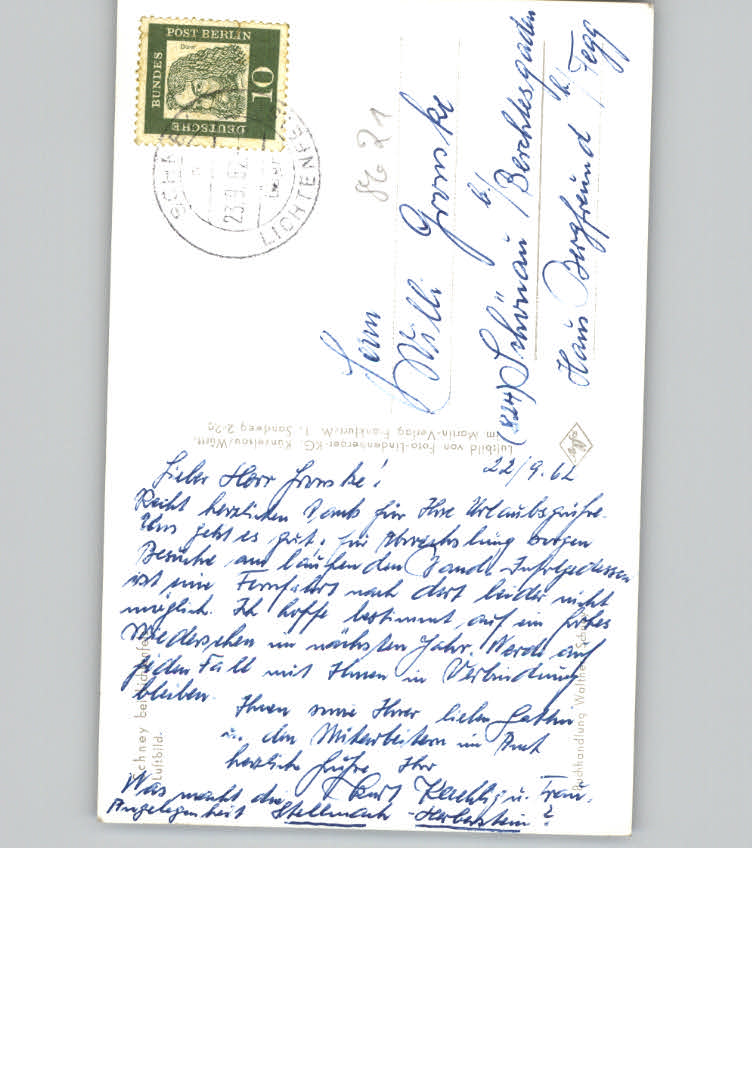 DEUTSCHE
BUNDES
POST BERLIN
10
Dürer
SCHNEY
23.9.62
LICHTENFELS
86 21
Herrn
Willi Gromske
(824) Schönau b/ Berchtesgaden
Haus Bergfreund b/ Fegg
Luftbild von Foto-Lindenberger-KG. Künzelsau/Württ.
im Martin-Verlag Frankfurt/M. 1, Sandweg
22/9.62
Lieber Herr Gromske!
Recht herzlichen Dank für Ihre Urlaubsgrüße.
Uns geht es gut. Für Abwechslung sorgen
Besuche am laufenden Bande. Infolgedessen
ist eine Fernfahrt nach dort leider nicht
möglich. Ich hoffe bestimmt auf ein frohes
Wiedersehen im nächsten Jahr. Werde auf
jeden Fall mit Ihnen in Verbindung
bleiben.
Ihnen sowie Ihrer lieben Gattin
u. den Mitarbeitern im Amt
herzliche Grüße Ihr
Kurt u. Frau.
Was macht die
Angelegenheit Stellmach - Herberstein?
Schney bei Lichtenfels
Luftbild.
Buchhandlung Walther